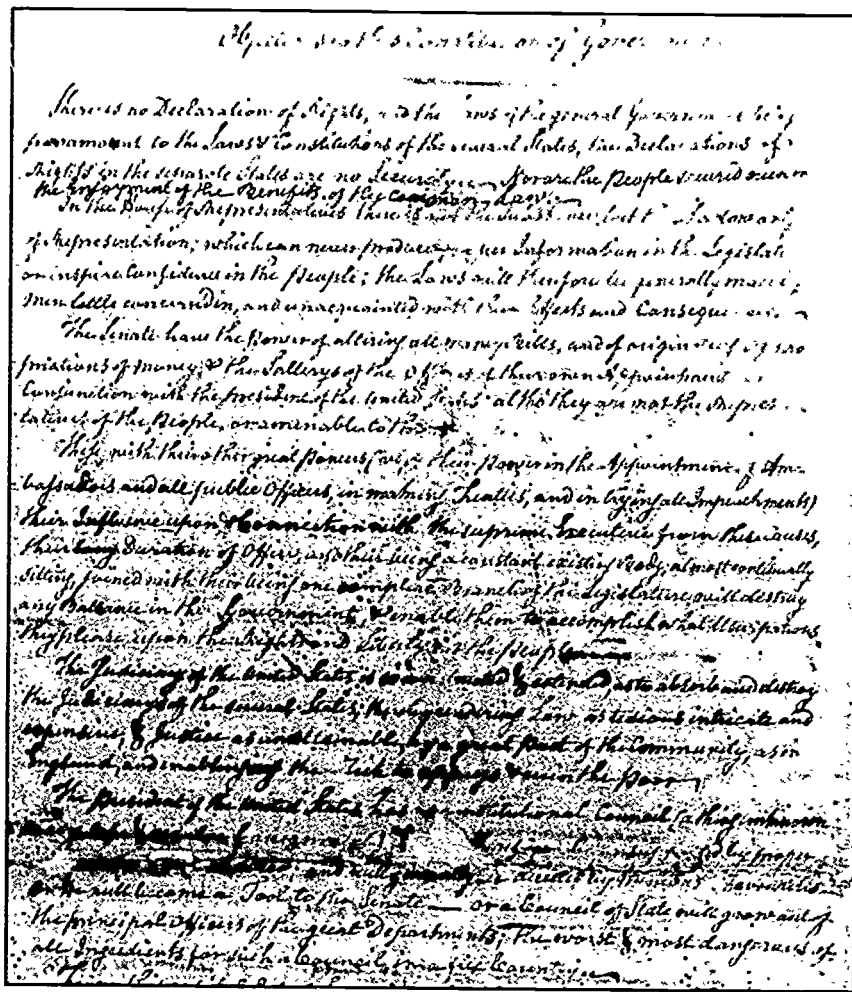 Constitution of Gover
There is no Declaration of Rights, and the Laws of the general Government being
paramount to the Laws & Constitutions of the several States, the Declarations of
Rights in the separate States are no Security. Nor are the People secured even in
the Enjoyment of the Benefits of the common Law.
In the House of Representatives there is not the
of Representation; which can never produce proper Information in the Legislature
or inspire Confidence in the People; the Laws will therefore be generally made by
Men little concern'd in, and unacquainted with their Effects and Consequences
The Senate have the Power of altering all money Bills, and of originating appro
priations of money, & the Sallerys of the Officers of their own Appointment in
Conjunction with the president of the united States; altho they are not the Represen
tatives of the People, or amenable to them
These with their other great Powers (vizt. their Power in the Appointment of Am
bassadors and all public Officers, in making Treaties, and in trying all Impeachments)
their Influence upon & Connection with the supreme Executive from these Causes,
their long Duration of Office, and their being a constant existing Body, almost continually
sitting, joined with their being one compleat Branch of the Legislature, will destroy
any Ballance in the Government, & enable them to accomplish what Usurpations
they please upon the Rights and Liberty of the People
The Judiciary of the united States is so constructed & extended, as to absorb and destroy
the Judiciarys of the several States; thereby rendering Law as tedious intricate and
expensive, & Justice as unattainable, by a great Part of the Community, as in
England, and enabling the Rich to oppress & ruin the Poor
The President of the united States has no constitutional Council (a thing unknown
by proper
and will generally be directed by Minions & Favourites
or he will become a Tool to the Senate — or a Council of State will grow out of
the principal Officers of the great Departments; the worst & most dangerous of
all Ingredients for such a Council, in a free Country